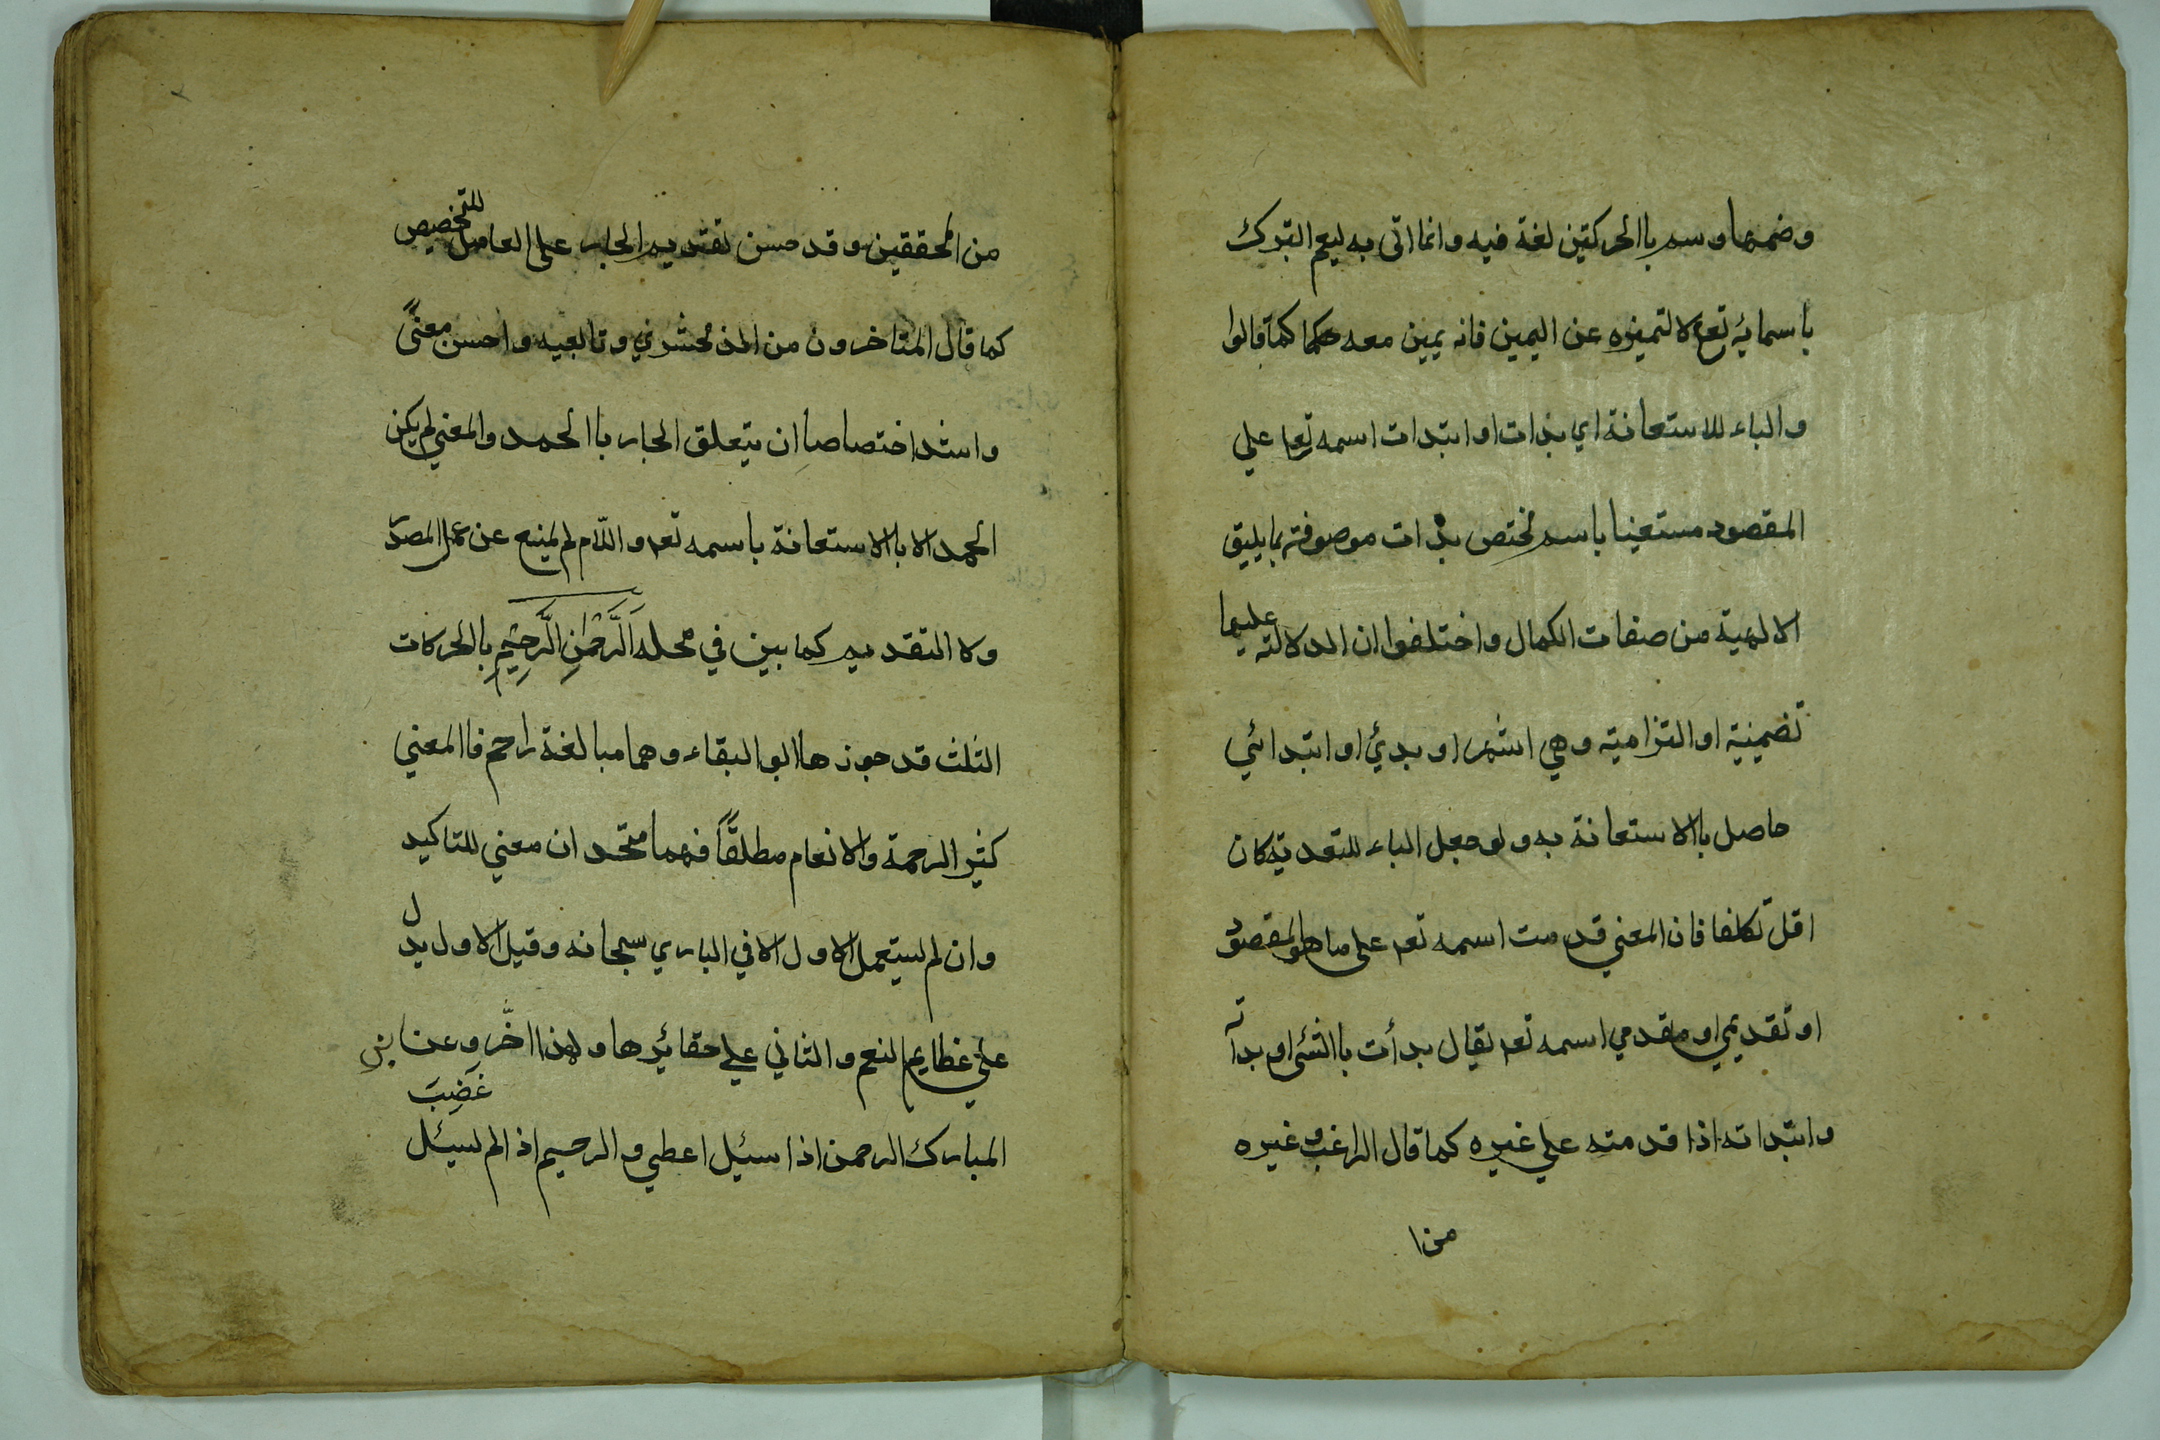 وضمها وسم باالحركتين لغة فيه وانما اتى به ليعم التبرك
باسمايه تعم لا لتميزه عن اليمين فانه يمين معه حكما كما قالوا
والباء للاستعانة اي بذات او ابتدات اسمه تعا علي
المقصود مستعينا باسم مختص بذات موصوفته بما يليق
الالهية من صفات الكمال واختلفوا ان الدلالته عليها
تضمينية او التزامية وهي اشهر او بدئي او ابتدائي
حاصل باالاستعانة به ولو جعل الباء للتعدية كان
اقل تكلفا فان المعني قدمت اسمه تعم على ما هو المقصود
او تقديمي او مقدمي اسمه تعم يقال بدأت باالشئ او بدأته
وابتداته اذا قدمته علي غيره كما قال الراغب وغيره
من ا
من المحققين وقد حسن تقديم الجار على العامل للتخصيص
كما قال المتاخرون من الزمخشري وتابعيه واحسن معنًى
واشد اختصاصا ان يتعلق الجار باالحمد والمعني لم يكن
الحمد الا باالاستعانة باسمه تعم واللام لم يمنع عن عمل المصدر
ولا التقديم كما بين في محله الَرَّحْمٰنِ الرَّحِيْمِ بالحركات
الثلث قد جوزها ابو البقاء وهما مبالغة راحم فاالمعني
كثير الرحمة والانعام مطلقًا فهما متحدان معني للتاكيد
وان لم يستعمل الاول الا في الباري سبحانه وقيل الاول يدل
علي عظايم النعم والثاني علي حقائرها ولهذا اخَّر وعن ابن
المبارك الرحمن اذا سئل اعطي والرحيم اذ الم يسئل
غَضِبَ